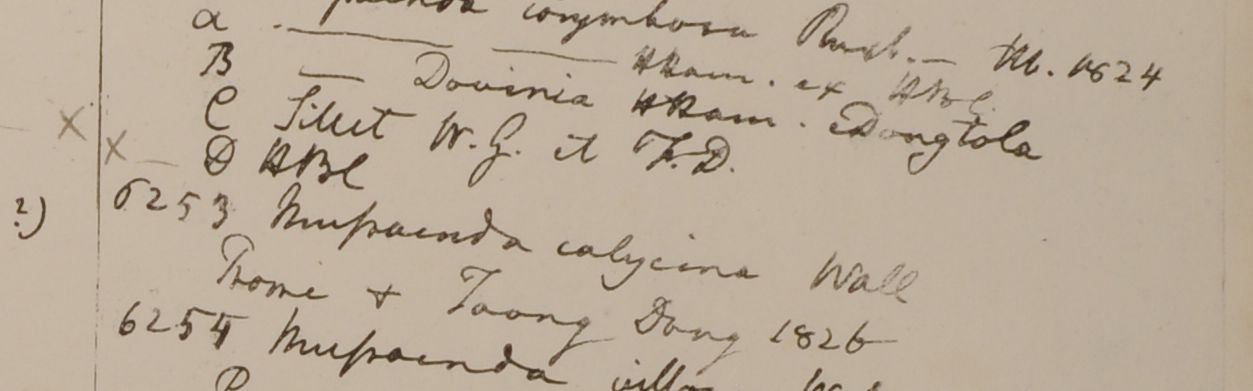 a. — — corymbosa Roxb. — Hb. 1824
B — Dovinia HHam. ex HBC.
C Silhet W.G. et F.D. HHam. Dongtola
D HBC
6253 Mussaenda calycina Wall
Prome & Taong Dong 1826
6254 Mussaenda